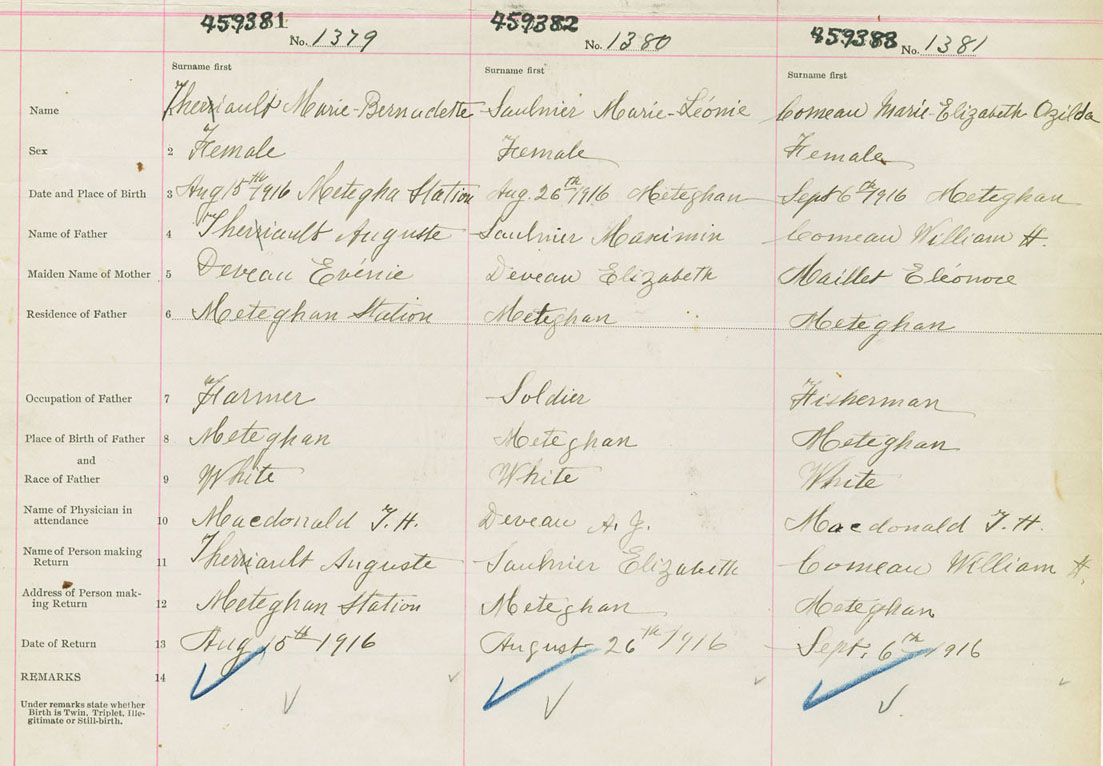 459381 459382 459383
No. 1379 No. 1380 No. 1381
Surname first Surname first Surname first
Name Therriault Marie-Bernadette Saulnier Marie-Léonie Comeau Marie-Elizabeth Ozilda
Sex 2 Female Female Female
Date and Place of Birth 3 Aug 15th 1916 Metegha Station Aug. 26th 1916 Meteghan Sept 6th 1916 Meteghan
Name of Father 4 Therriault Auguste Saulnier Maximin Comeau William H.
Maiden Name of Mother 5 Deveau Evénie Deveau Elizabeth Maillet Eléonore
Residence of Father 6 Meteghan Station Meteghan Meteghan
Occupation of Father 7 Farmer Soldier Fisherman
Place of Birth of Father 8 Meteghan Meteghan Meteghan
and
Race of Father 9 White White White
Name of Physician in
attendance 10 Macdonald T. H. Deveau A. J. Macdonald T. H.
Name of Person making
Return 11 Therriault Auguste Saulnier Elizabeth Comeau William H.
Address of Person mak-
ing Return 12 Meteghan Station Meteghan Meteghan
Date of Return 13 Aug 15th 1916 August 26th 1916 Sept. 6th 1916
REMARKS 14
Under remarks state whether
Birth is Twin, Triplet, Ille-
gitimate or Still-birth.